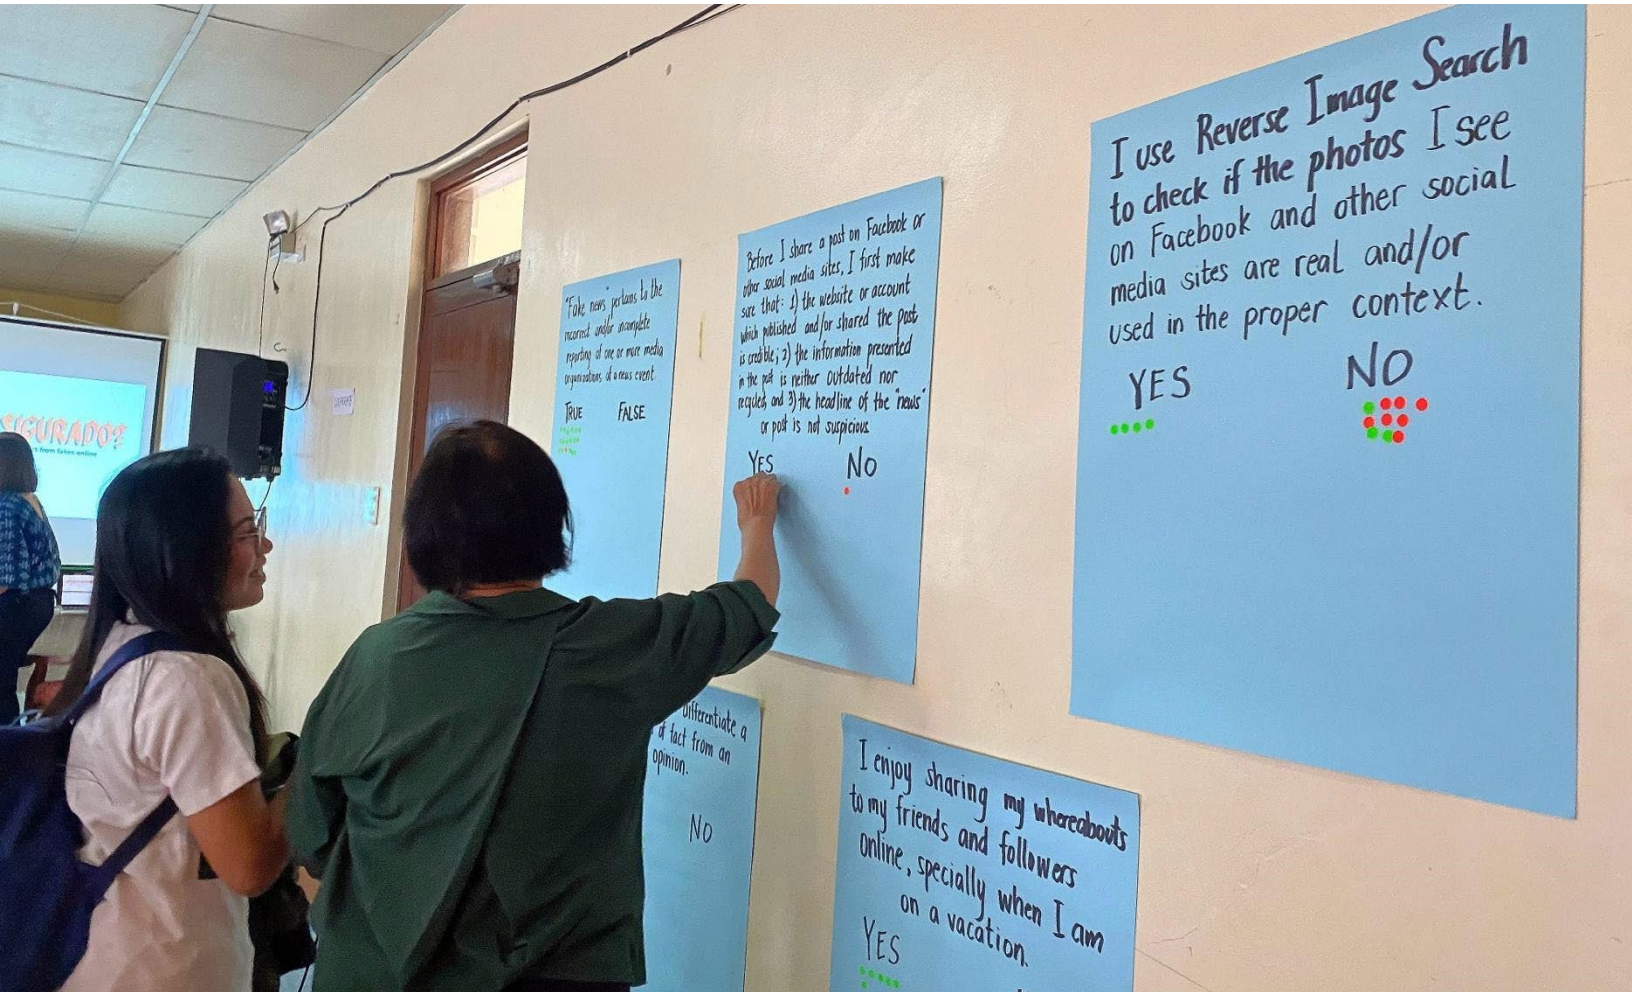 SIGURADO?
from fakes online
"Fake news" pertains to the
incorrect and/or incomplete
reporting of one or more media
organizations of a news event
TRUE FALSE
Before I share a post on Facebook or
other social media sites, I first make
sure that: 1) the website or account
which published and/or shared the post
is credible; 2) the information presented
in the post is neither outdated nor
recycled, and 3) the headline of the "news"
or post is not suspicious
YES NO
I use Reverse Image Search
to check if the photos I see
on Facebook and other social
media sites are real and/or
used in the proper context.
YES NO
differentiate a
of fact from an
opinion.
NO
I enjoy sharing my whereabouts
to my friends and followers
online, specially when I am
on a vacation.
YES